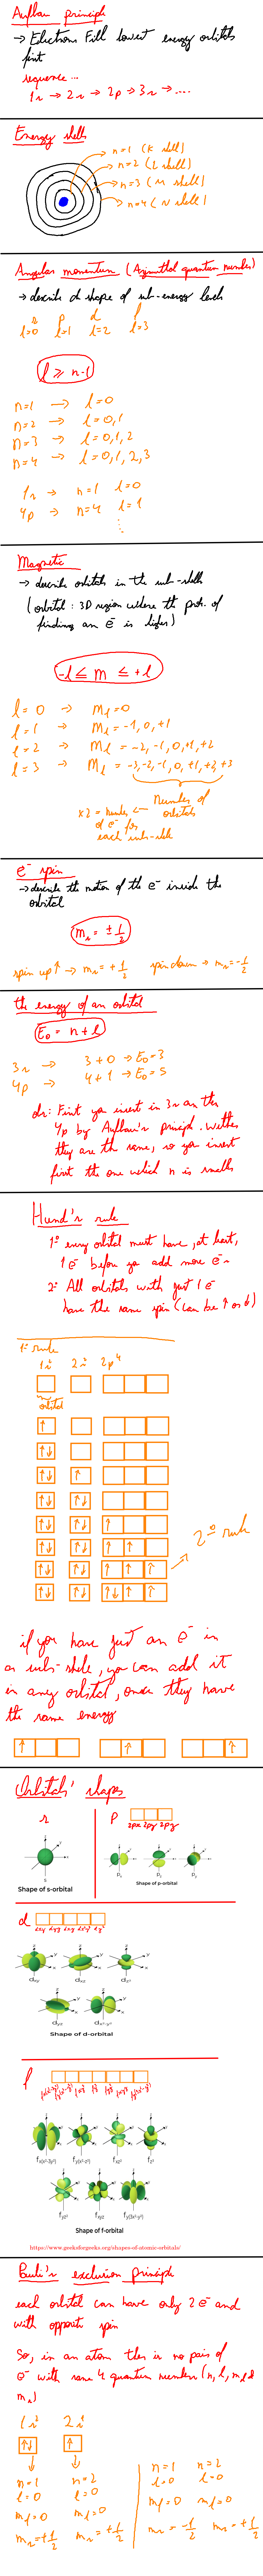 Aufbau principle
→ Electrons Fill lowest energy orbitals
first
sequence...
1s → 2s → 2p → 3s → ....
Energy shells
n=1 (K shell)
n=2 (L shell)
n=3 (M shell)
n=4 (N shell)
Angular momentum (Azimuthal quantum number)
→ describe shape of sub-energy levels
s p d f
l=0 l=1 l=2 l=3
l ⩾ n-1
n=1 → l=0
n=2 → l=0,1
n=3 → l=0,1,2
n=4 → l=0,1,2,3
1s → n=1 l=0
4p → n=4 l=1
Magnetic
→ describe orbitals in the sub-shells
(orbital: 3D region where the prob. of
finding an e⁻ is higher)
-l ≤ m ≤ +l
l = 0 → ml=0
l = 1 → ml=-1,0,+1
l = 2 → ml = -2,-1,0,+1,+2
l = 3 → ml = -3,-2,-1,0,+1,+2,+3
x2 = number ← Number of
of e⁻ for orbitals
each sub-shell
e⁻ spin
→ describe the motion of the e⁻ inside the
orbital
ms = ± 1/2
spin up ↑ → ms = + 1/2 spin down → ms = - 1/2
the energy of an orbital
Eo = n+l
3s → 3+0 → Eo=3
4p → 4+1 → Eo=5
obs: First you insert in 3s than the
4p by Aufbau's principle. Wether
they are the same, so you insert
first the one which n is smaller
Hund's rule
1º every orbital must have, at least,
1e⁻ before you add more e⁻
2º All orbitals with just 1e⁻
have the same spin (can be ↑ or ↓)
1º rule
1s² 2s² 2p⁴
orbital
2º rule
if you have just an e⁻ in
a sub-shell, you can add it
in any orbital, once they have
the same energy
Orbitals' shapes
s
p
2px 2py 2pz
Shape of s-orbital
Shape of p-orbital
d
dxy dxz dz² dyz dx²-y²
Shape of d-orbital
f
fx(x²-3y²) fy(x²-z²) fxz² fz³
fyz² fxyz fy(3x²-y²)
Shape of f-orbital
https://www.geeksforgeeks.org/shapes-of-atomic-orbitals/
Pauli's exclusion principle
each orbital can have only 2e⁻ and
with opposite spin
So, in an atom there is no pair of
e⁻ with same 4 quantum numbers (n, l, ml &
ms)
1s² 2s¹
n=1 n=2
l=0 l=0
ml=0 ml=0
ms=+1/2 ms=+1/2
n=1 n=2
l=0 l=0
ml=0 ml=0
ms=-1/2 ms=+1/2